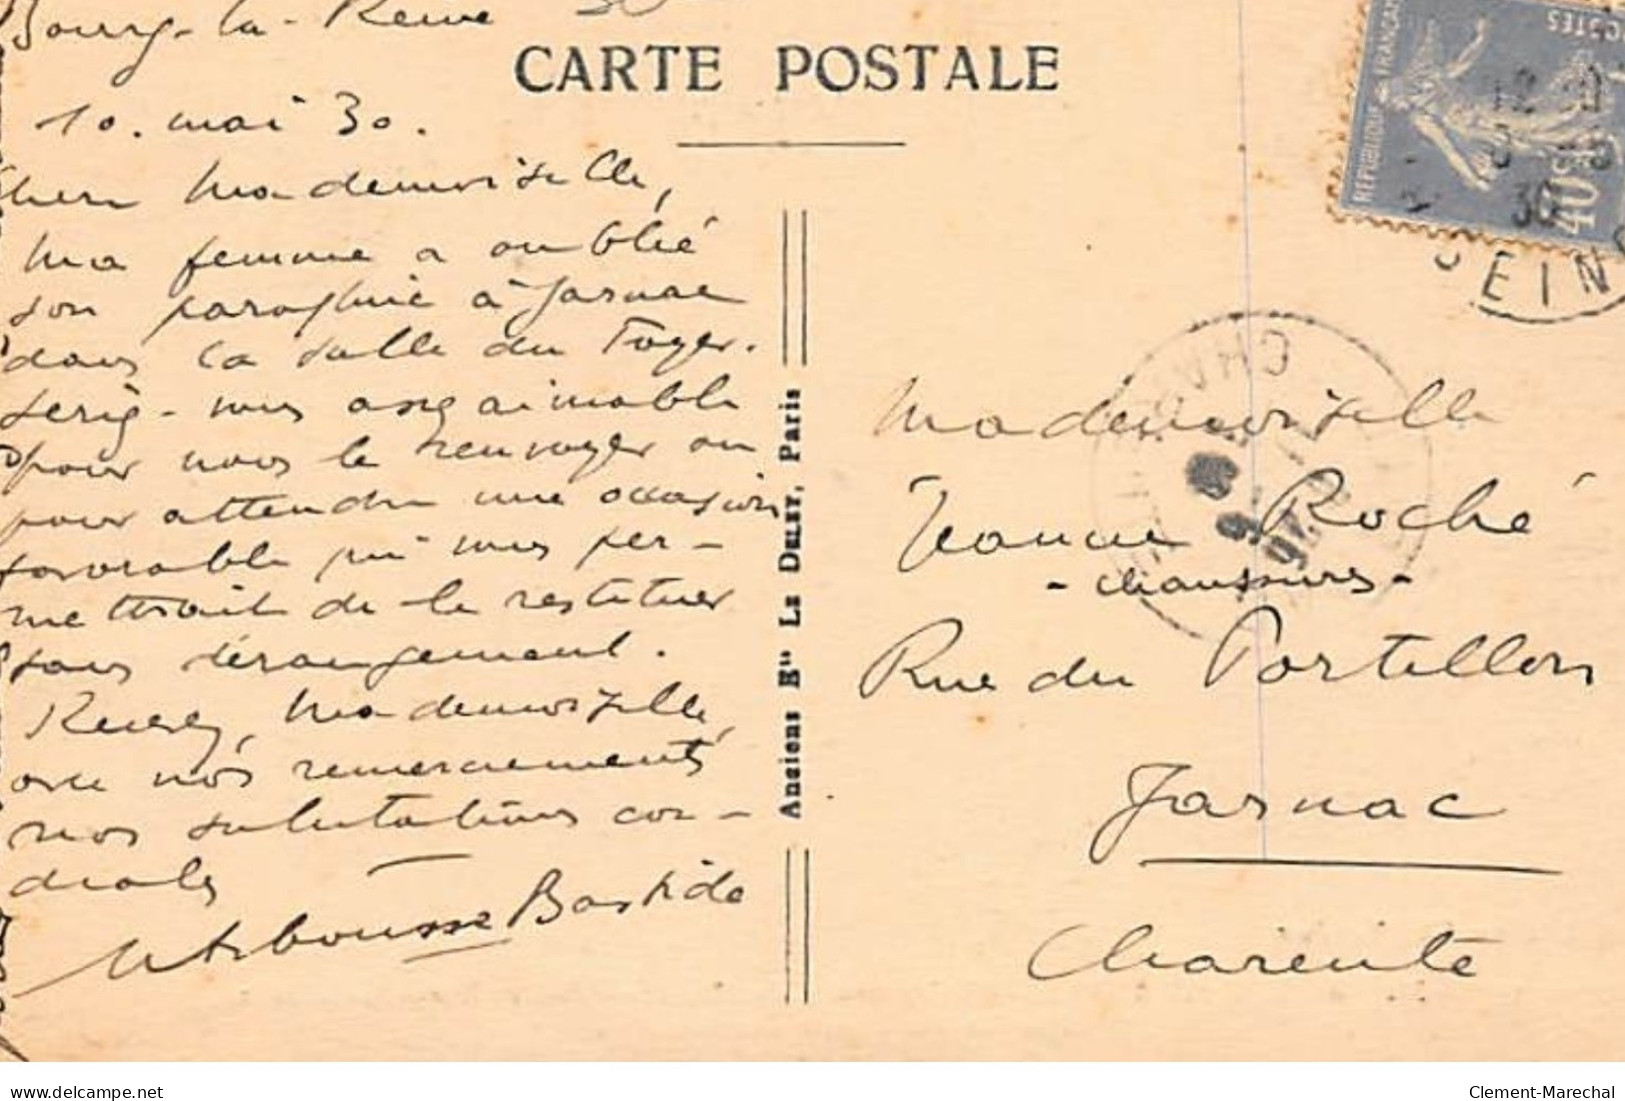 Bourg-la-Reine 30
CARTE POSTALE
10. mai 30.
Chère Mademoiselle,
Ma femme a oublié
son parapluie à Jarnac
dans la salle du Foyer.
Seriez-vous assez aimable
pour nous le renvoyer ou
pour attendre une occasion
favorable qui vous per-
mettrait de le restituer
sans dérangement.
Recevez, Mademoiselle,
avec nos remerciements
nos salutations cor-
diales
Arbousse Bastide
Anciens Etts LE DELEY, Paris
REPUBLIQUE FRANÇAISE
POSTES
40c
30
SEINE
CHA
Mademoiselle
Jeanne Roché
- chaussures -
Rue du Portillon
Jarnac
Charente
delcampe.net
Clement-Marechal